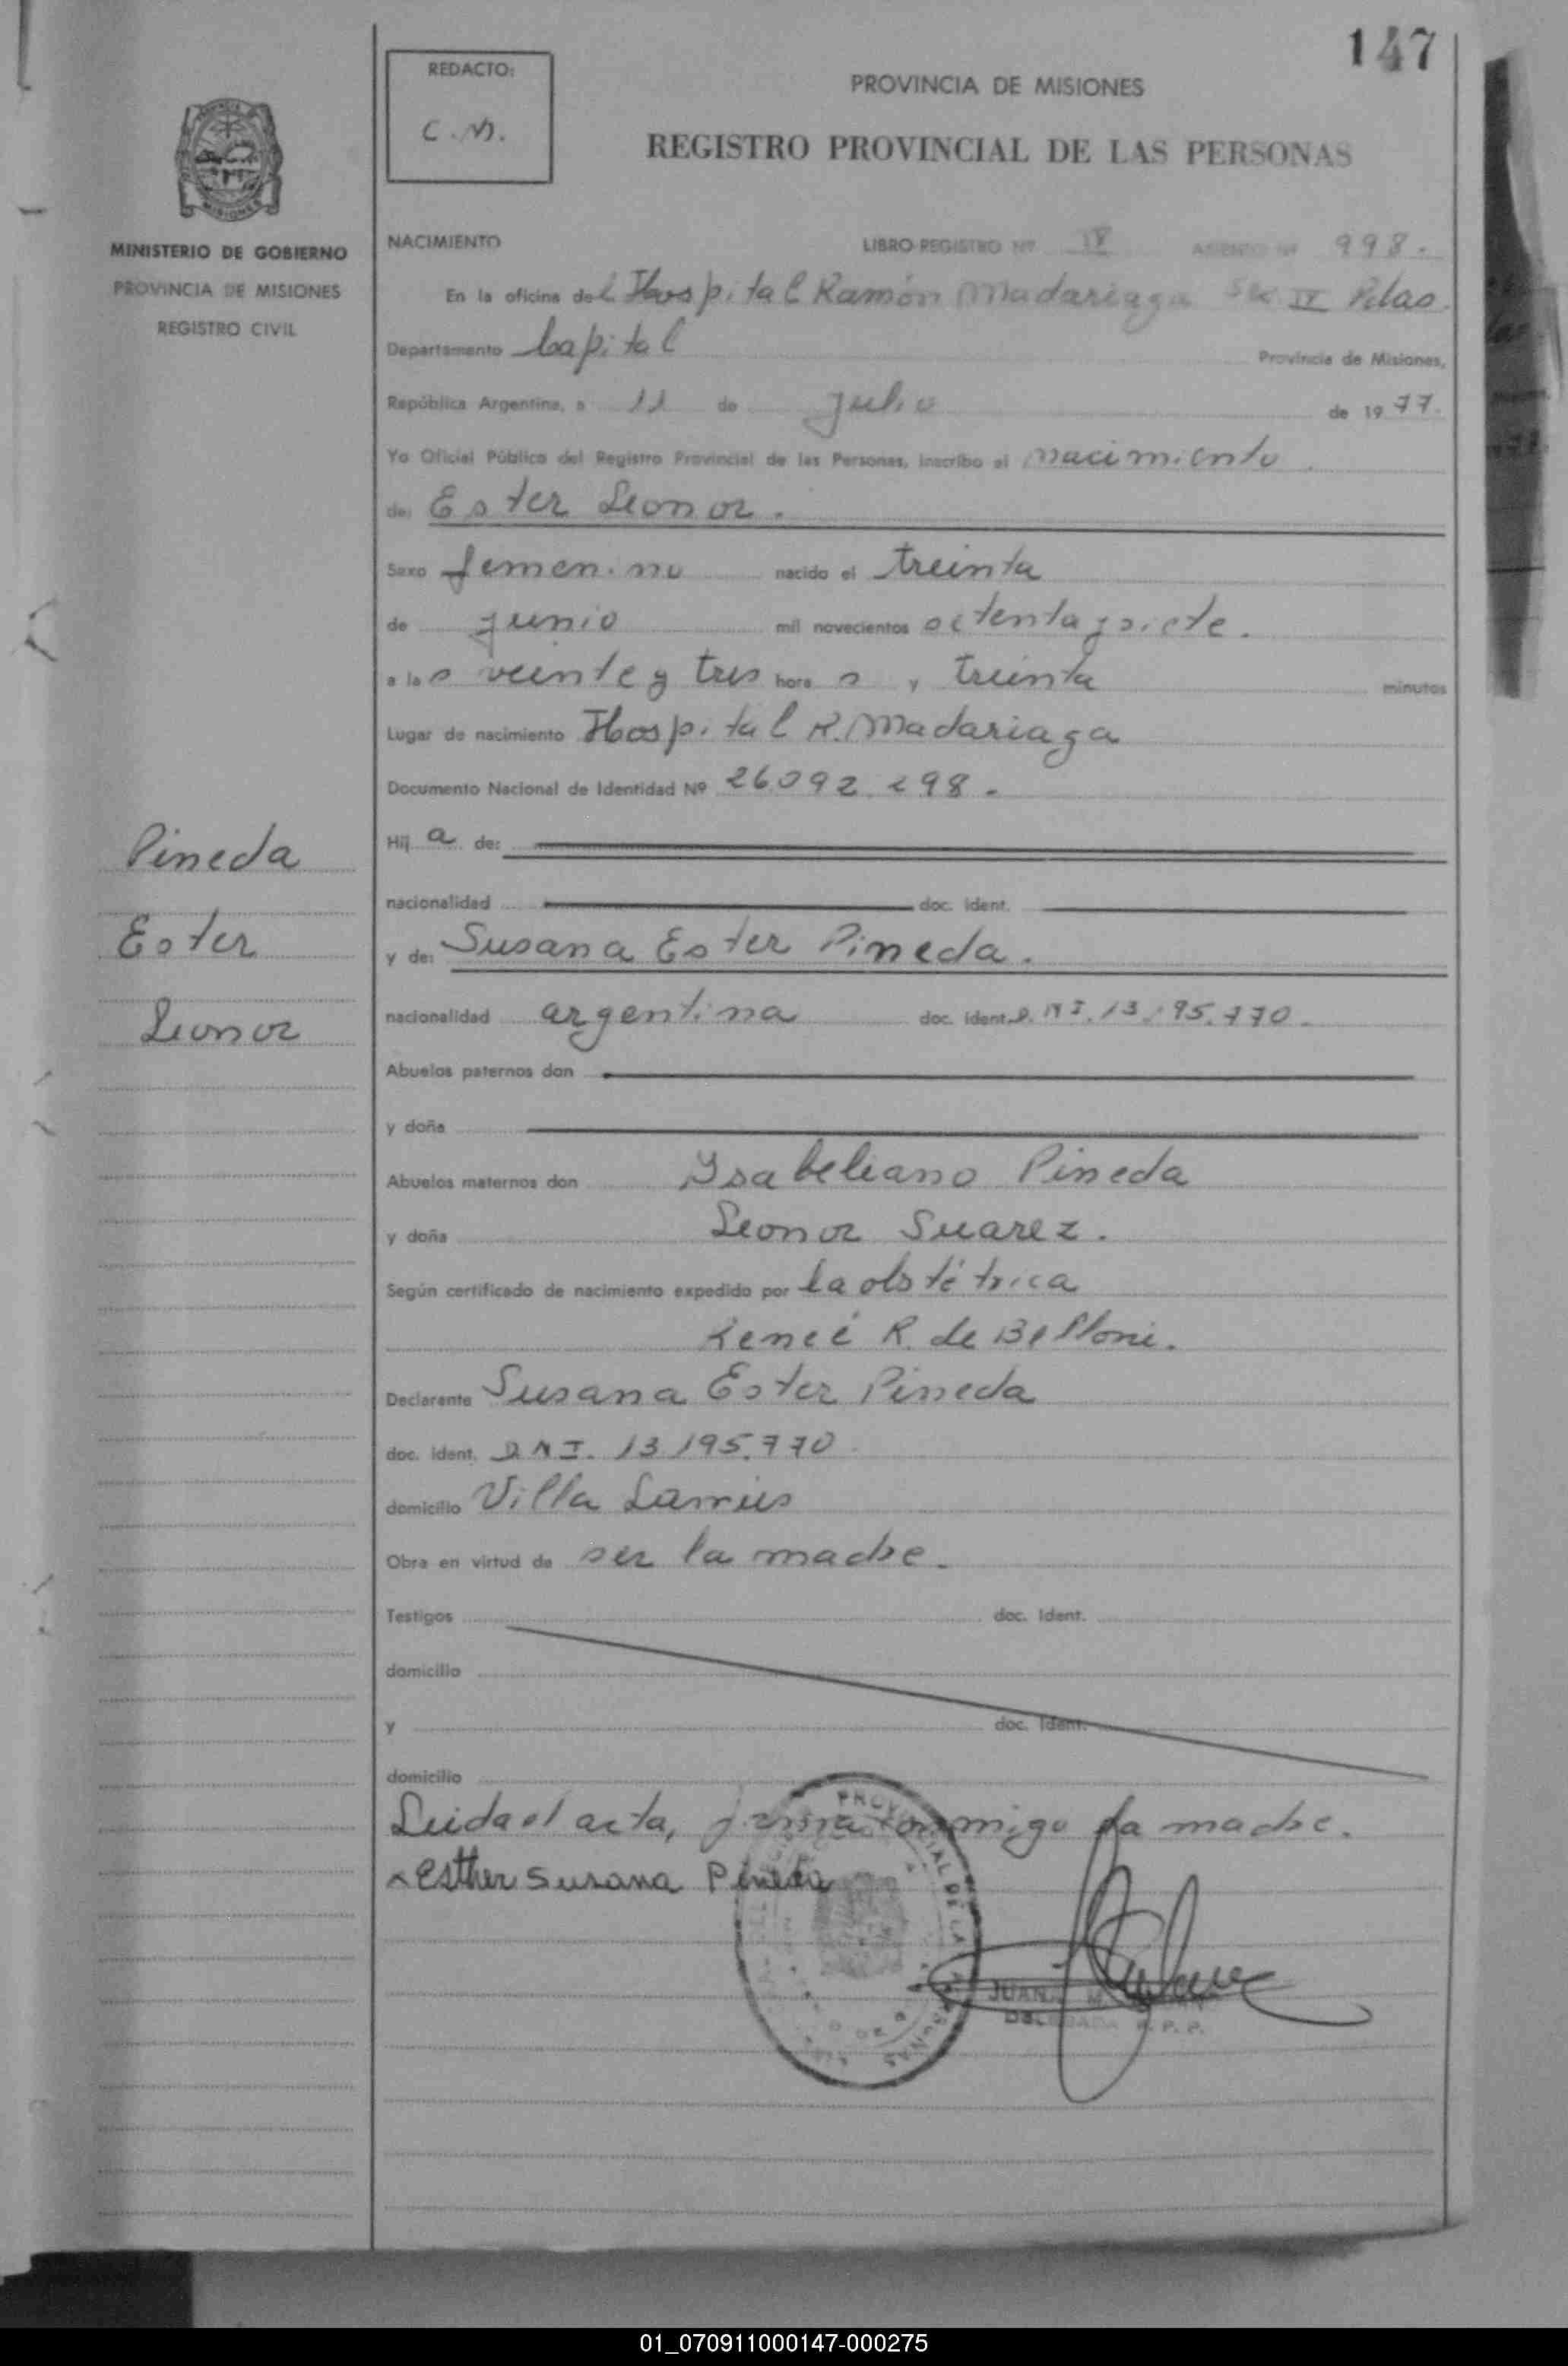 147
REDACTO:
C.M.
PROVINCIA DE MISIONES
REGISTRO PROVINCIAL DE LAS PERSONAS
MISIONES
MINISTERIO DE GOBIERNO
PROVINCIA DE MISIONES
REGISTRO CIVIL
NACIMIENTO LIBRO REGISTRO Nº IV ASIENTO Nº 998.
En la oficina del Hospital Ramón Madariaga Sec IV Pdas.
Departamento Capital Provincia de Misiones,
República Argentina, a 11 de Julio de 1977.
Yo Oficial Público del Registro Provincial de las Personas, inscribo el nacimiento
de: Ester Leonor.
Sexo femenino nacido el treinta
de junio mil novecientos setenta y siete.
a las veinte y tres horas y treinta minutos
Lugar de nacimiento Hospital R. Madariaga
Documento Nacional de Identidad Nº 26.092.298.
Hija de:
nacionalidad doc. ident.
y de: Susana Ester Pineda.
nacionalidad argentina doc. ident. D.N.I. 13.195.770.
Abuelos paternos don
y doña
Abuelos maternos don Ysabeleano Pineda
y doña Leonor Suarez.
Según certificado de nacimiento expedido por la obstétrica
R. de Belloni.
Declarante Susana Ester Pineda
doc. ident. D.N.I. 13.195.770.
domicilio Villa Lanús
Obra en virtud de ser la madre.
Testigos doc. ident.
domicilio
y doc. ident.
domicilio
Leida el acta, firma conmigo la madre.
Esther Susana Pineda
JUANA M.
DELEGADA R. P. P.
Pineda
Ester
Leonor
01_070911000147-000275